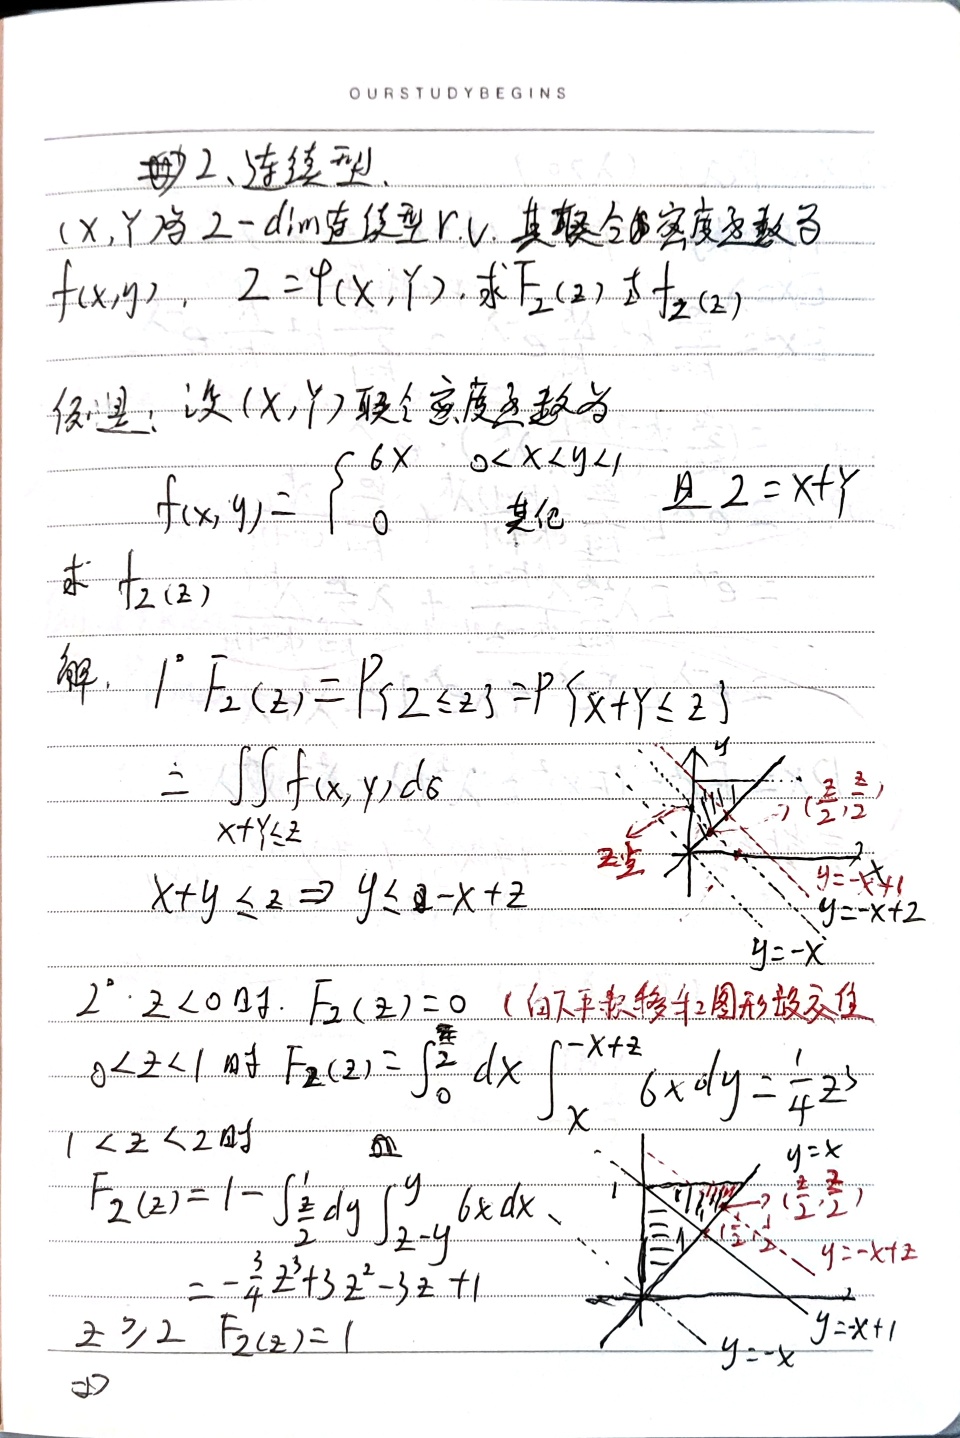 OURSTUDYBEGINS
2、连续型.
(X,Y)为2-dim连续型r.v. 其联合密度函数为
f(x,y), Z=φ(X,Y).求F_Z(z)与f_Z(z)
例题:设(X,Y)联合密度函数为
f(x,y)={ 6x 0<x<y<1
0 其他 且 Z=X+Y
求 f_Z(z)
解. 1° F_Z(z)=P{Z≤z}=P{X+Y≤z}
= ∬f(x,y)dσ
x+y≤z
x+y≤z⇒y≤-x+z
y
(z/2,z/2)
z
x
y=-x+1
y=-x+2
y=-x
2°. z<0时. F_Z(z)=0 (向下平移
0<z<1时 F_Z(z)=∫_0^{z/2} dx ∫_x^{-x+z} 6xdy=1/4 z³
1<z<2时
F_Z(z)=1-∫_{z/2}^1 dy∫_{z-y}^y 6xdx
=-3/4 z³+3z²-3z+1
z≥2 F_Z(z)=1
⇒
y=x
1
(z/2,z/2)
(1/2,1/2)
y=-x+z
y=-x+1
y=-x